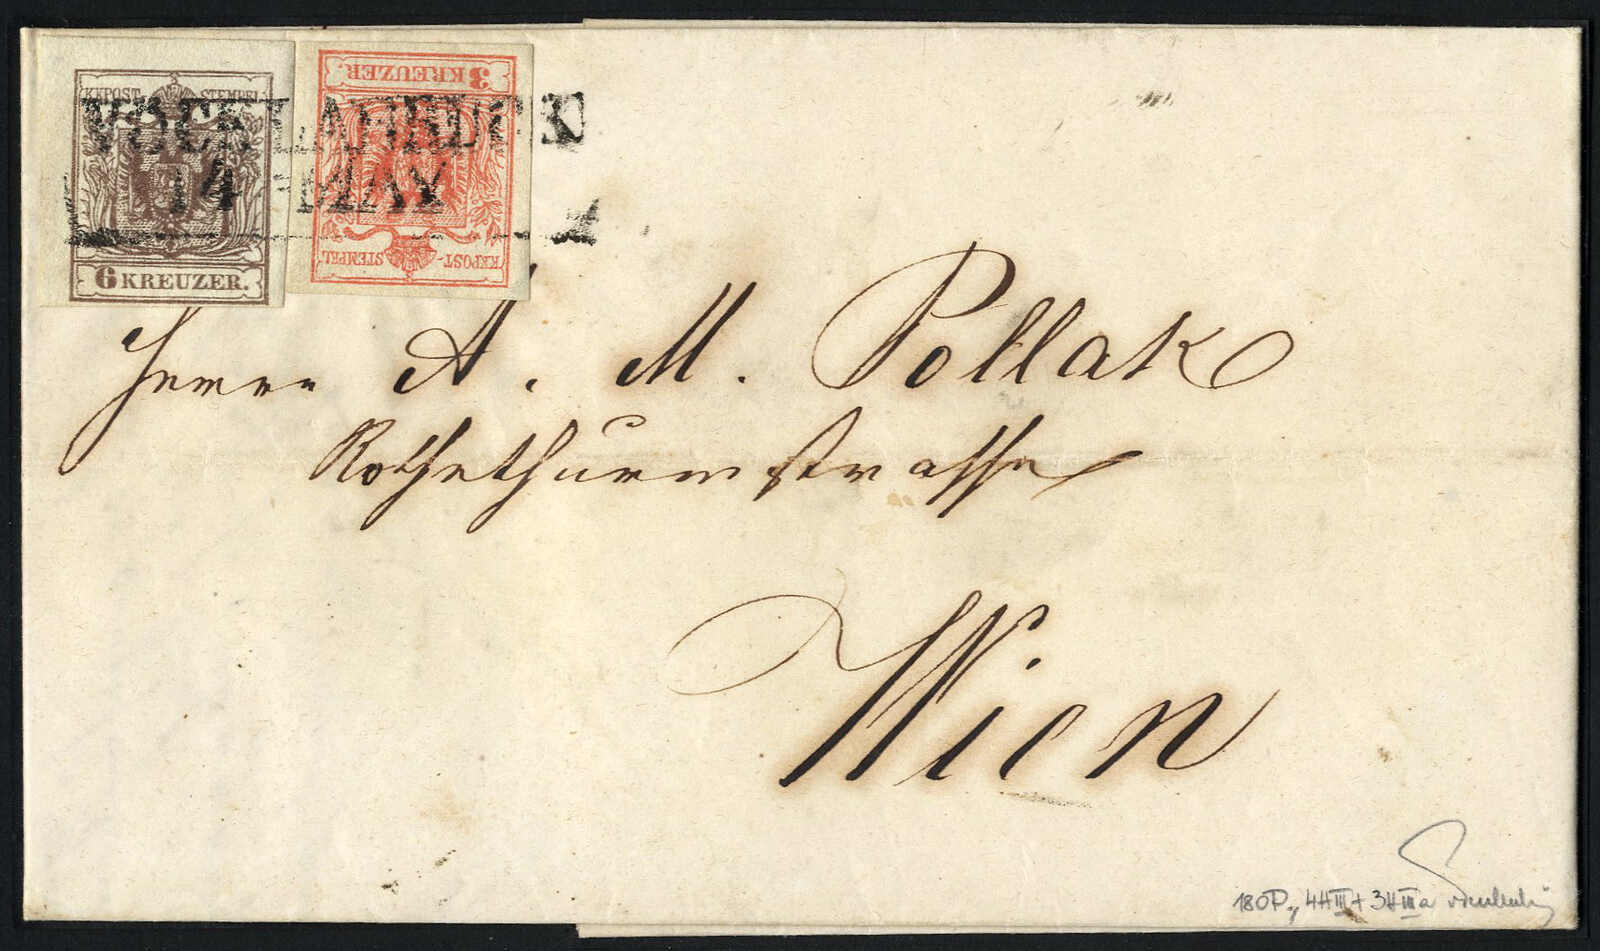 KKPOST- STEMPEL
6 KREUZER.
3 KREUZER.
KKPOST- STEMPEL
VÖCKLABRUCK
14 MAY
Herrn A. M. Pollak
Rothethurmstrasse
Wien
180P., 4HIII + 3HIIIa